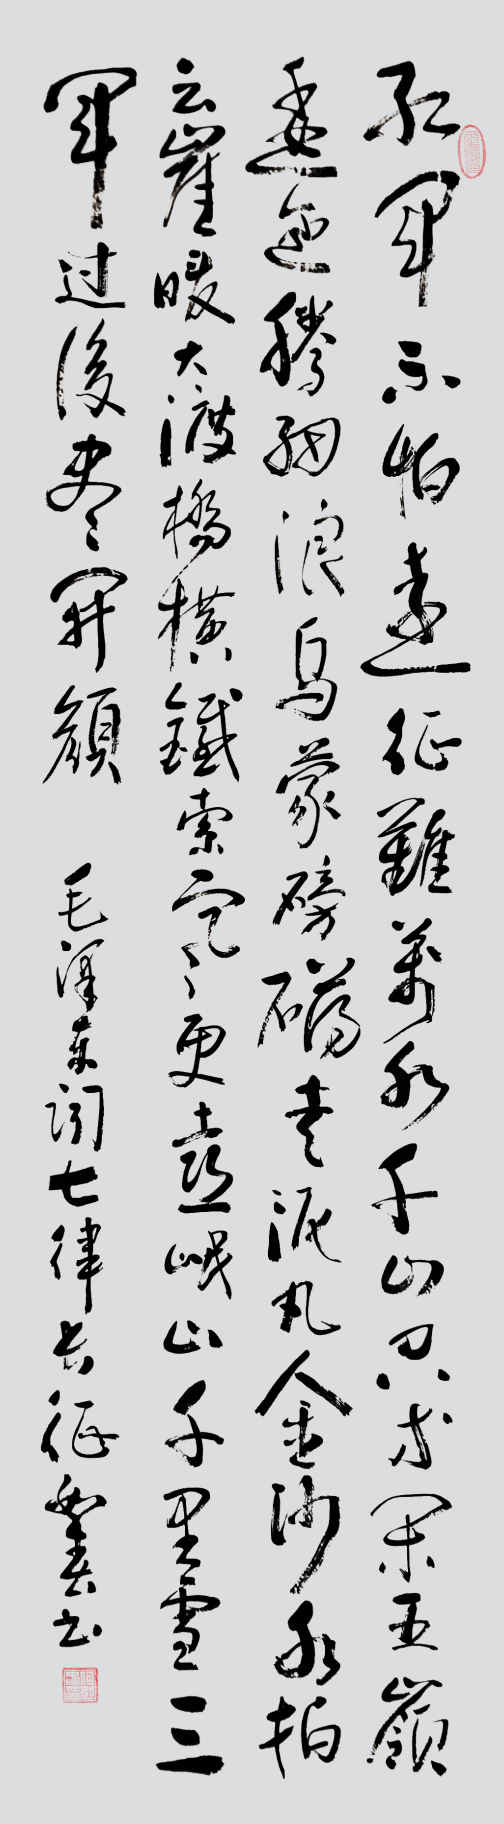 红军不怕远征難萬水千山只等闲五嶺
逶迤腾细浪乌蒙磅礴走泥丸金沙水拍
云崖暖大渡橋横鐵索寒更喜岷山千里雪三
军过後尽开颜
毛泽东词七律长征 书